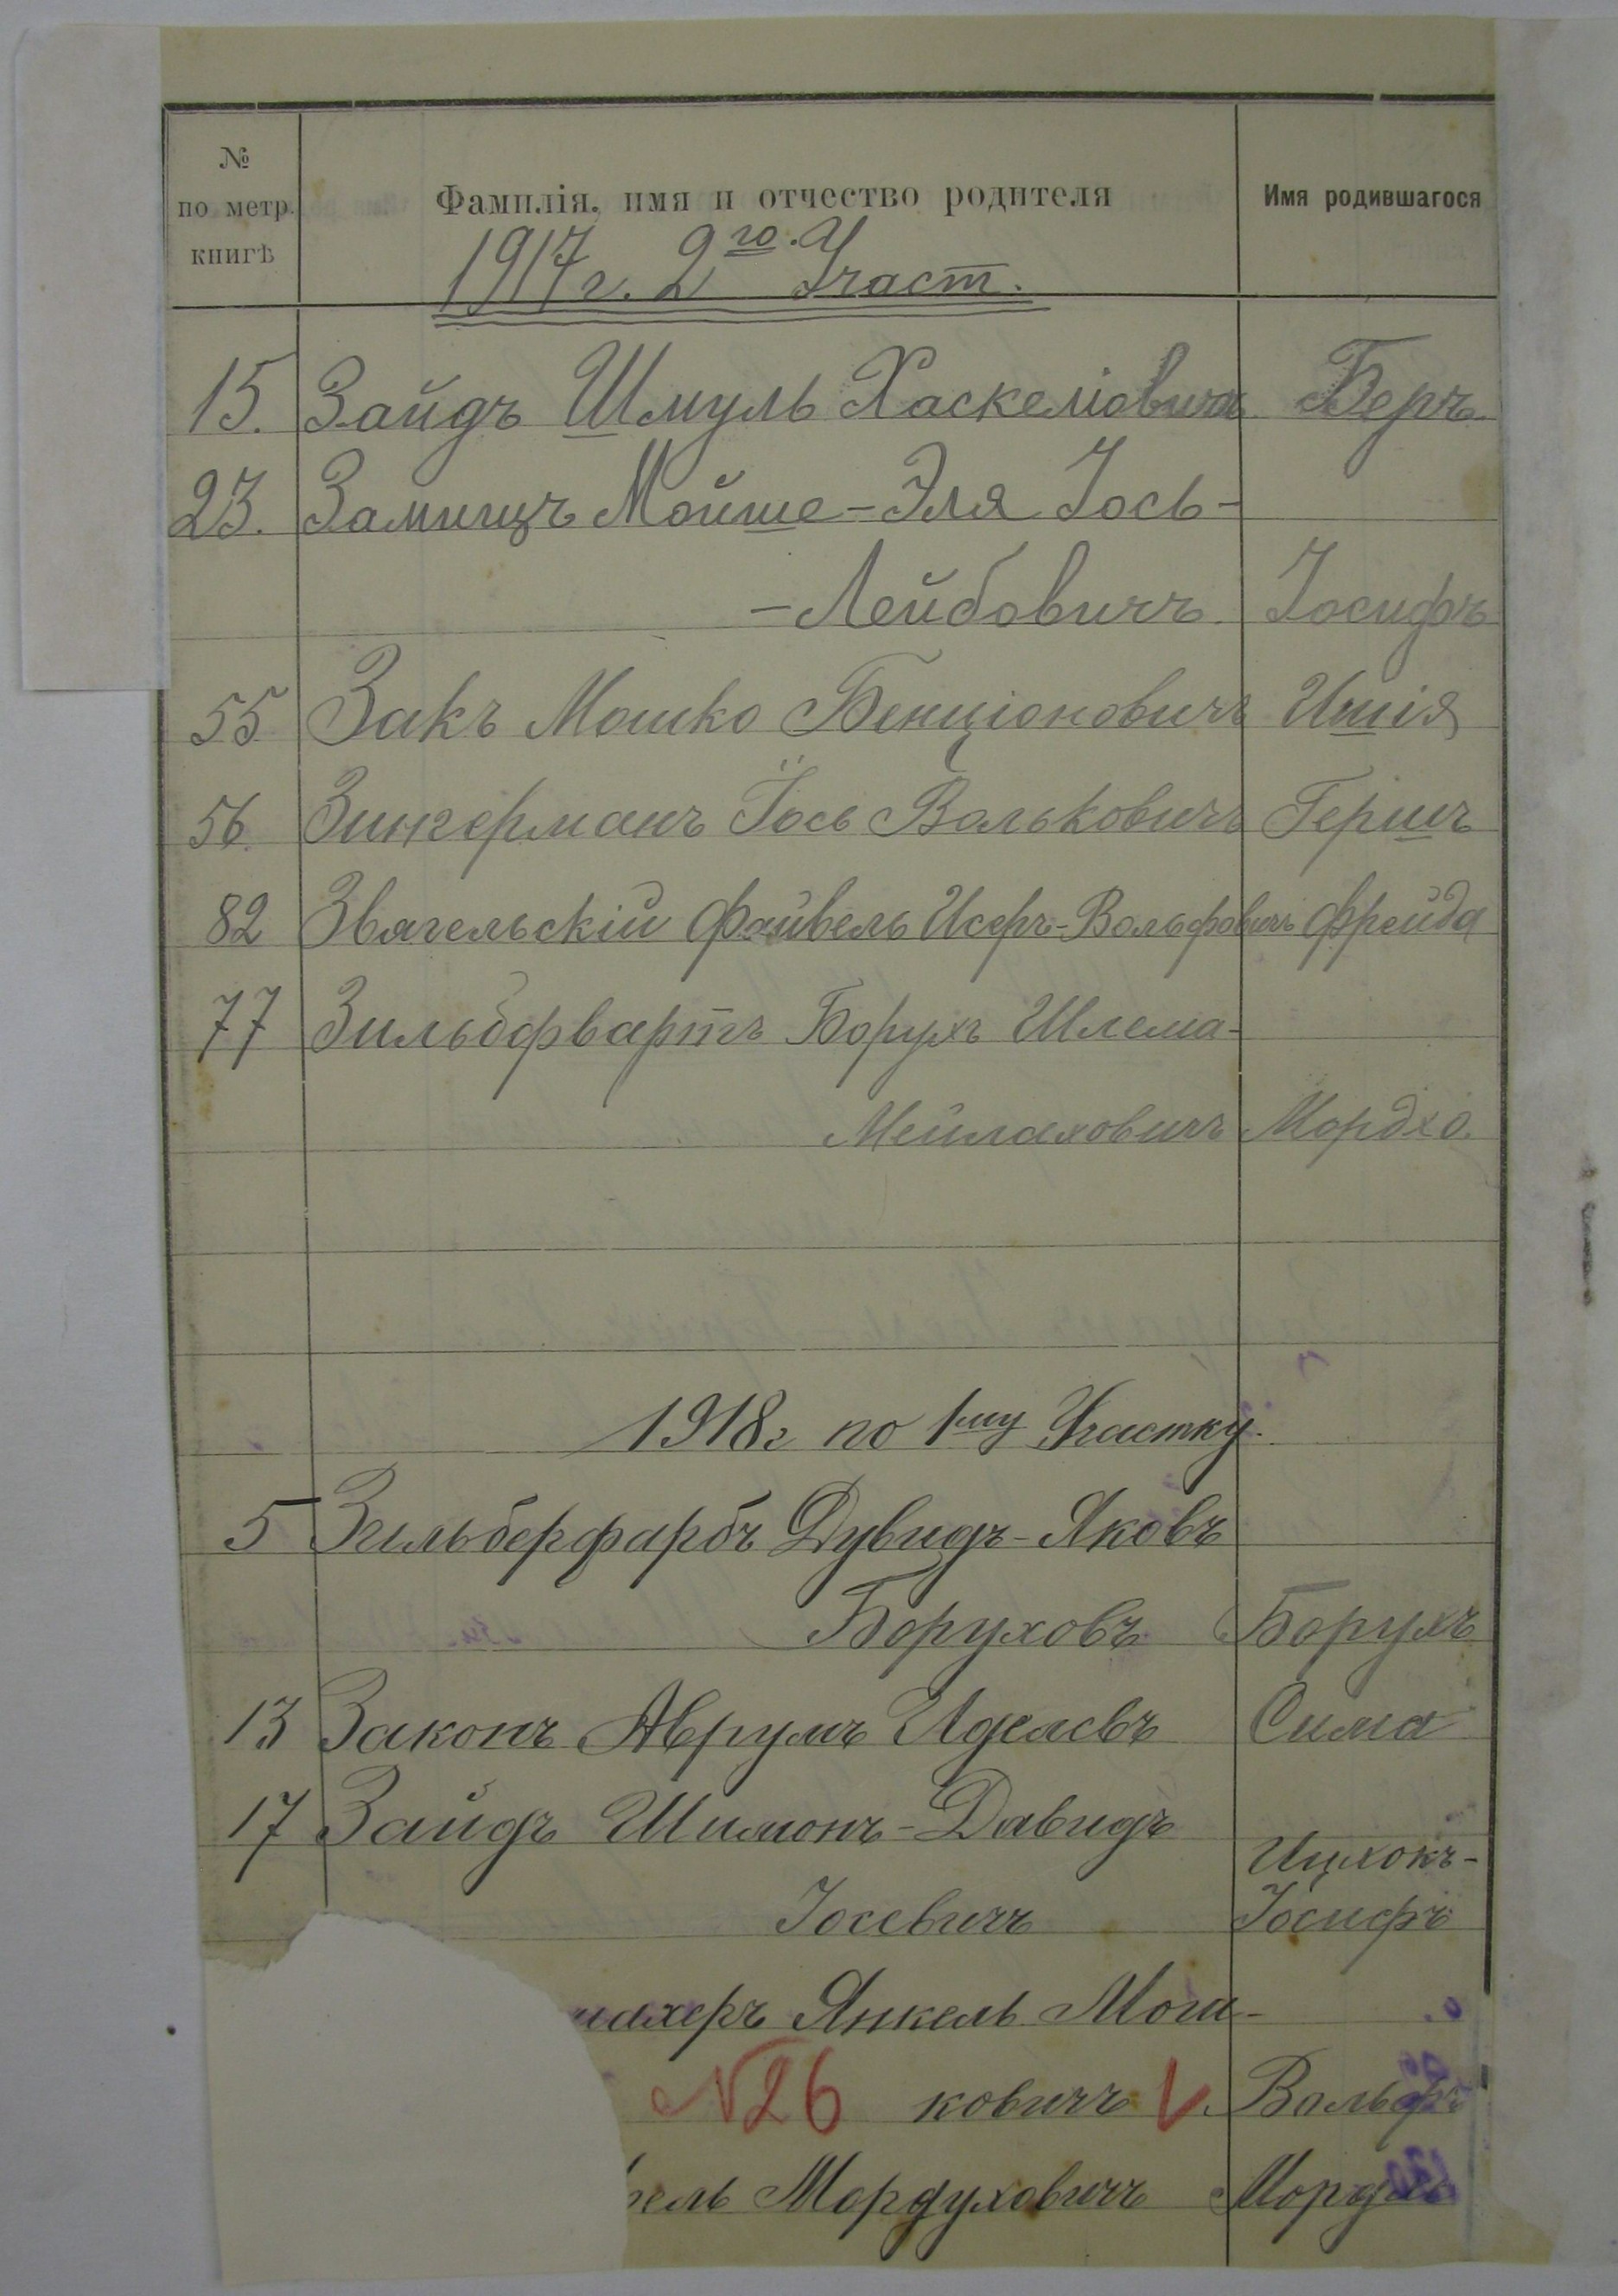 № по метр. книгѣ Фамилія, имя и отчество родителя Имя родившагося
1917 г. 2го Участ.
15. Зайдъ Шмуль Хаскеліовичъ Беръ.
23. Замищъ Мойше-Эля Іось-
-Лейбовичъ. Іосифъ
55 Закъ Мошко Бенціоновичъ Ишія
56. Зингерманъ Іось Вольковичъ Гершъ
82 Звягельскій Файвель Исеръ-Вольфовичъ Фрейда
77 Зильбфвартъ Борухъ Шлема-
Мейлаховичъ Мордхо.
1918г по 1му Участку.
5 Зильберфарбъ Дувидъ-Яковъ
Боруховъ Борухъ
13 Законъ Аврумъ Сима
17 Зайдъ Шимонъ-Давидъ
Ицхокъ-
Іосевичъ Іосифъ
махеръ Янкель Мош-
N26 ковичъ V. Вольфъ
ель Мордуховичъ